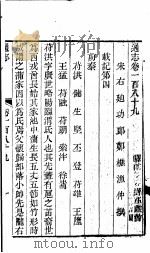 通志卷一百八十九
宋右迪功郎鄭樵漁仲撰
載記第四
前秦
苻洪 健 生 堅 丕 登 苻雄 王墮
王猛 苻融 苻朗 索泮 徐嵩
苻洪字廣世略陽臨渭氐人也其先蓋有扈之苗裔世
為西戎酋長始其家池中蒲生長五丈五節如竹形時
謂之蒲家因以為氏焉父懷歸部落小帥先是隴右